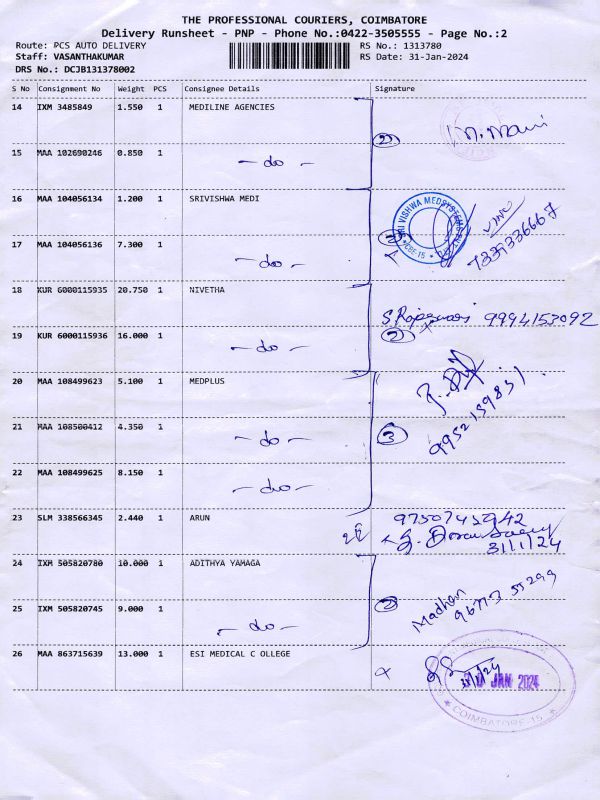 THE PROFESSIONAL COURIERS, COIMBATORE
Delivery Runsheet - PNP - Phone No.:0422-3505555 - Page No.:2
Route: PCS AUTO DELIVERY RS No.: 1313780
Staff: VASANTHAKUMAR RS Date: 31-Jan-2024
DRS No.: DCJB131378002
S No Consignment No Weight PCS Consignee Details Signature
14 IXM 3485849 1.550 1 MEDILINE AGENCIES
M. Mani
2
15 MAA 102690246 0.850 1 - do -
16 MAA 104056134 1.200 1 SRIVISHWA MEDI
SRI VISHWA MEDSYSTEMS
CBE-15
7339336667
17 MAA 104056136 7.300 1 - do - 2
18 KUR 6000115935 20.750 1 NIVETHA
9994153092
19 KUR 6000115936 16.000 1 - do - 2
20 MAA 108499623 5.100 1 MEDPLUS
9952159831
21 MAA 108500412 4.350 1 - do - 3
22 MAA 108499625 8.150 1 - do -
23 SLM 338566345 2.440 1 ARUN
31/1/24
24 IXM 505820780 10.000 1 ADITHYA YAMAGA
Madhan
96773 55299
25 IXM 505820745 9.000 1 - do - 2
26 MAA 863715639 13.000 1 ESI MEDICAL C OLLEGE
x
JAN 2024
COIMBATORE-15